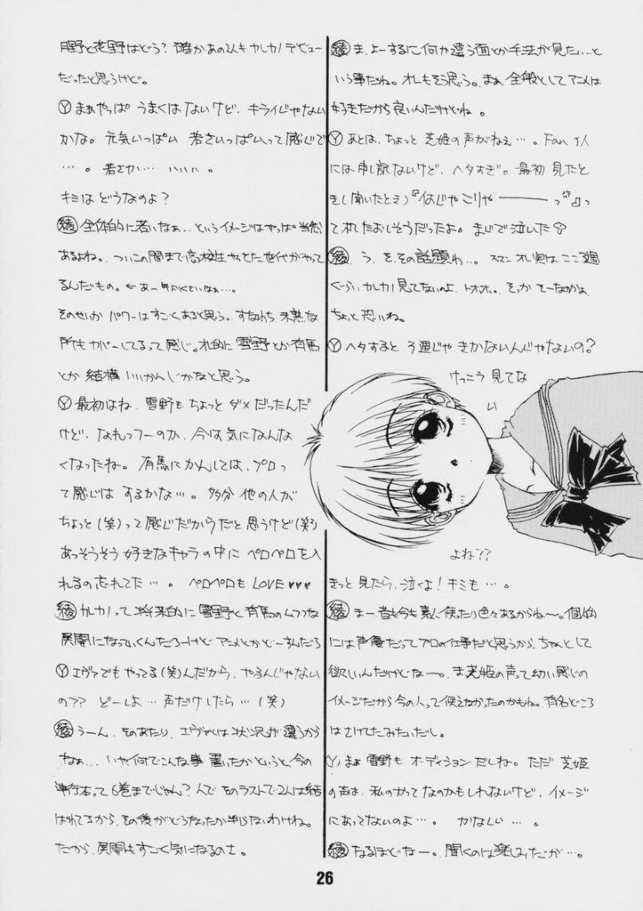 月野と花野はどう？確かあの2人もカレカノデビュー
だったと思うけど。
Ⓨまぁやっぱうまくはないけど、キライじゃない
かな。元気いっぱい 若さいっぱいって感じで
…。若さか… いいん。
キミはどうなのよ？
綾 全体的に若いなぁ…というイメージはやっぱ当然
あるよね。ついこの間まで高校生やってた世代がやって
るんだもの。
そのせいか パワーはすごくあると思う。すなわち、未熟な
所もカバーしてるって感じ。オレ的に雪野とか有馬
とか結構いいかんじかなと思う。
Ⓨ最初はね、雪野もちょっとダメだったんだ
けど、なれっつーのか、今は気になんな
くなったね。有馬にかんしては、プロっ
て感じはするかな…。多分他の人が
ちょっと（笑）って感じだからだと思うけど（笑）
あっそうそう好きなキャラの中にペロペロを入
れるの忘れてた…。ペロペロもLOVE♥♥♥
綾 カレカノって将来的に雪野と有馬のムフフな
展開になっていくんだろーけどアニメとかどーすんだろ
Ⓨエヴァでもやってる（笑）んだから、やるんじゃない
の？？どーしよ…声だけしたら…（笑）
綾 うーん、そのあたり、エヴァとは状況が違うから
なぁ… いや何でこんな事書いたかというと、今の
単行本って6巻まででじゃん？んで そのラストで2人は結
ばれてるから、その後がどうなったか判らないわけね。
だから、展開もすごく気になるのさ。
綾 ま、よーするに何か違う面とか手法が見たい…と
いう事だね。オレもそう思う。まぁ全般としてアニメは
好きだから良いんだけどね。
Ⓨあとは、ちょっと芝姫の声がねぇ…。Fanの人
には申し訳ないけど、ヘタすぎ。最初見たと
き（聞いたとき）『なんじゃこりゃ――っ』っ
てたおれそうだったよ。まじで泣いた
綾 う、を、その話題わ…。スマン オレ実は ここ3週
ぐらいカレカノ見てないのよ、トホホ。
ちょっと恐いね。
Ⓨヘタすると3週じゃきかないんじゃないの？
けっこう見てな
い
よね？？
きっと見たら、泣くよ！キミも…。
綾 まー昔も今も素人使ったり色々あるからねー。個人的
には声優だってプロの仕事だと思うから、ちゃんとして
欲しいんだけどなー。ま芝姫の声って幼い感じの
イメージだから今の人って使えなかったのかもね。有名どころ
はさけてたみたいだし。
Ⓨまぁ雪野もオーディションだしね。ただ芝姫
の声は、私のかってなのかもしれないけど、イメージ
にあってないのよ…。かなしい…。
綾 なるほどなー。聞くのは楽しみだが…。
26